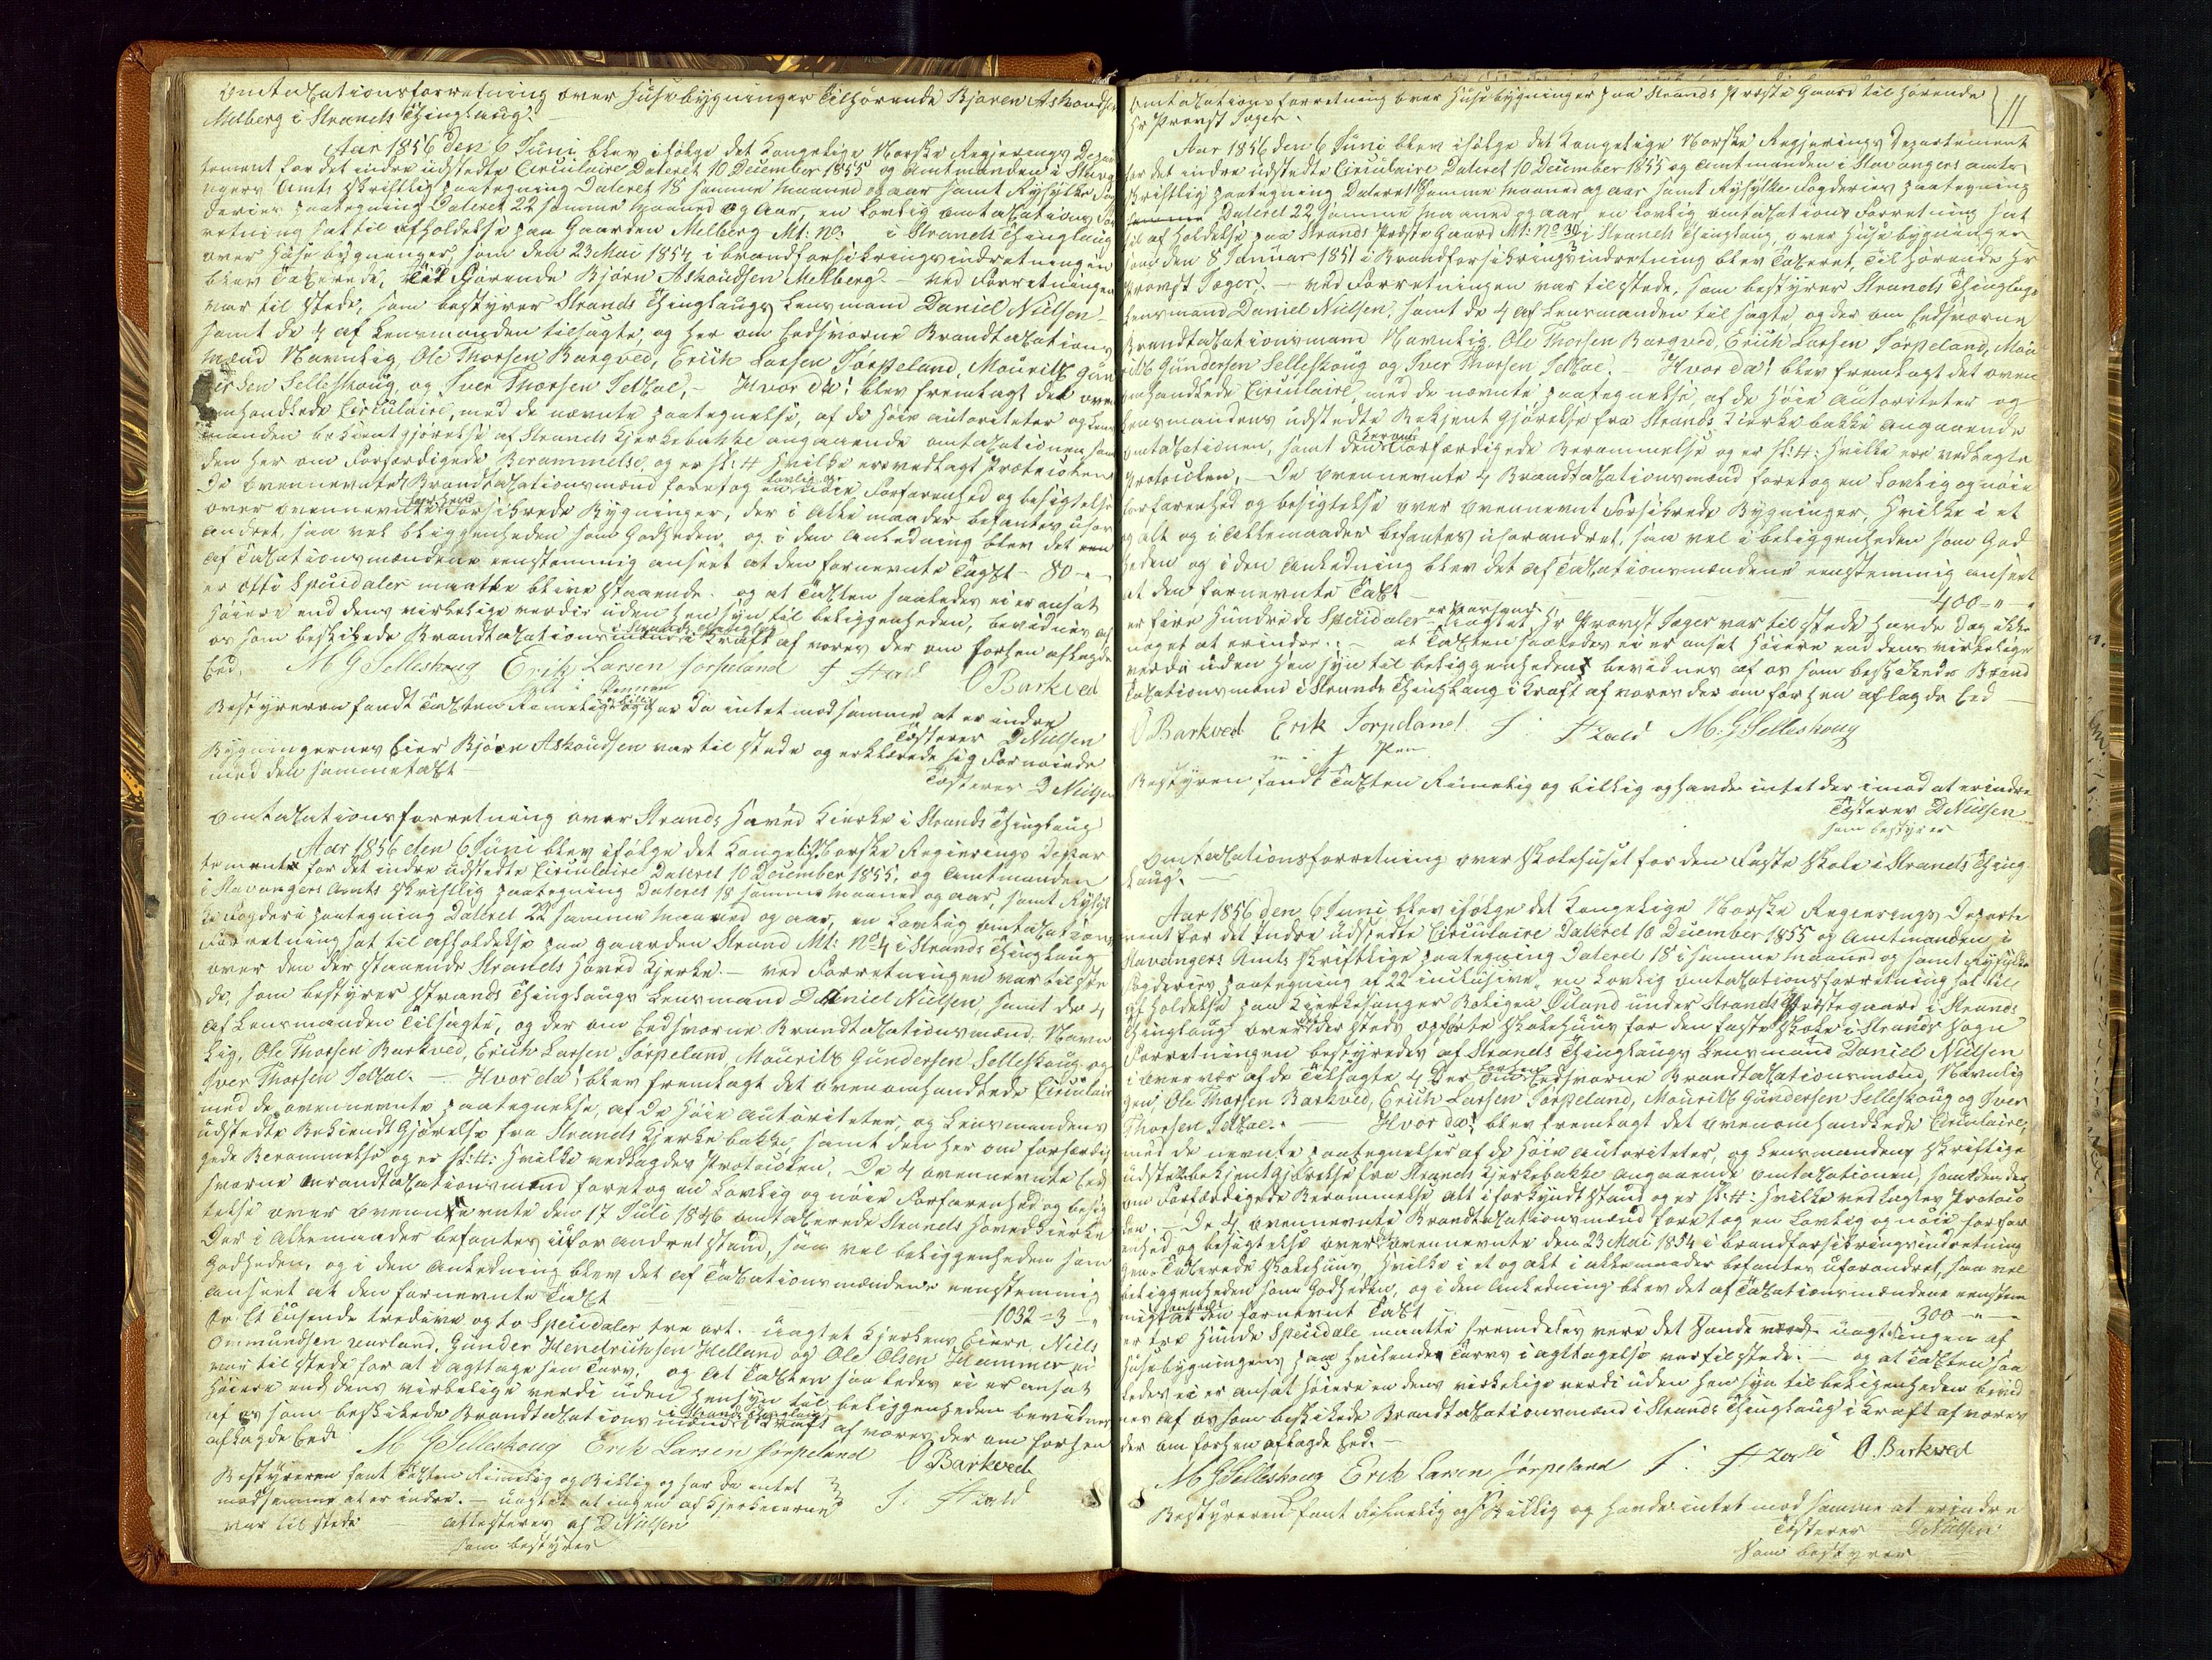 Omtaxationsforretning over Husebygninger Tilhørende Bjøren Askoudsen
Melberg i Strands Thinglaug.
Aar 1856 den 6 Juni blev ifølge det Kongelige Norske Regjerings Depar
tement for det indre udstedte Circulaire Dateret 10 December 1855 og Amtmanden i Stavan
gers Amts skriftlig paategning Dateret 18 samme Maaned og aar samt Ryfylke Fog
deries paategning Dateret 22 samme Maaned og Aar, en Lovlig omtaxations For
retning sat til afholdelse paa Gaarden Melberg Mt: No: i Strands Thinglaug
over Huse bygninger, som den 23 Mai 1854 i brandforsikringsindretningen
blev Taxerede, Til Hørende Bjørn Askoudsen Melberg. – Ved Forretningen
var til stede, som bestyrer Strands Thinglaugs Lensmand Daniel Nielsen
samt de 4 af Lensmanden tilsagte, og her om Eedsvorne Brandtaxations
mænd Navnlig, Ole Thorsen Barqved, Erich Larsen Tørpeland, Mouritz Gun
dersen Selleskoug, og Iver Thorsen Idtzal, – Hvor da! blev fremlagt det oven
omhandlede Circulaire, med de nævnte paategnelse, af de Høie autoriteter og Lens
mandens bekientgjørelse af Strands Kjerkebakke angaaende omtaxationen, samt
den her om Forfærdigede Berammelse, og er sl: # Hvilke er vedlagt Protocolen
De ovennevnte Brandtaxationsmænd foretog en Lovlig og nøie Forfarenhed og besigtelse
over ovennevnte Forsikrede Bygninger, der i Alle maader befantes ufor
andret, saa vel bliggenheden som Godheden, og i den Anledning blev det een
af Taxationsmændene eenstemmig anseet at den fornevnte Taxt – 80 – " –
er otti Speciedaler maatte blive staaende. og at Taxten saaledes ei er ansat
høiere end dens virkelige verdie uden Hensyn til beliggenheden, bevidnes af
os som beskikede Brandtaxationsmænd i Strands Thinglaug i Kraft af vores der om forhen aflagde
Eed. M G Selleskoug Erik Larsen Jørpeland I Itzald O Barkved
Bestyreren fandt Taxten Rimelig og billig og har da intet mod samme at er indre
Tæsterer DNielsen
Bygningernes Eier Bjørn Askoudsen var til stede og erklærede sig Fornøiede
med den sammetaxt –
Tæsterer DNielsen
Omtaxationsforretning over Strands Hoved Kierke i Strands Thinglaug
Aar 1856 den 6 Juni blev ifølge det Kongelige Norske Regierings Depar
tement for det indre udstedte Circulaire Dateret 10 December 1855, og Amtmanden
i Stavangers Amts skriftlig paategning Dateret 18 samme Maaned og aar, samt Ryfyl
ke Fogderi paategning Dateret 22 samme Maaned og aar, en Lovlig omtaxations
Forretning sat til afholdelse paa Gaarden Strand Mt: No 4 i Strands Thinglaug
over den der staaende Strands Hoved Kjerke. – ved Forretningen var til ste
de, som bestyrer Strands Thinglaugs Lensmand Daniel Nielsen, samt de 4
af Lensmanden Tilsagte, og der om Eedsvorne Brandtaxationsmænd, Navn
lig, Ole Thorsen Barkved, Erich Larsen Tørpeland, Mouritz Gundersen Selleskoug og
Iver Thorsen Idtzal. – Hvor da! blev fremlagt det ovenomhandlede Circulair
med de ovennevnte paategnelse, af de Høie autoriteter, og Lensmandens
udstedte Bekiendt Gjørelse fra Strands Kjerke bakke, samt den Her om forfærdi
gede Berammelse og er sl: #: Hvilke vedlagdes Protocolen. De 4 ovennevnte Eed
svorne Brandtaxationsmænd foretog en Lovlig og nøie Forfarenhed og besig
telse over ovennevnte den 17 Juli 1846 omtaxerede Strands Hovedkierke
Der i Allemaader befantes iuforandret stand, saa vel beliggenheden som
Godheden, og i den Anledning blev det af Taxationsmændene eenstemmig
anseet at den fornevnte Taxt – – – 1032 – 3 – "
Er Et Tusende tredive og to Speciedaler tre ort. uagtet Kjerkens Eiere, Niels
Ommundsen Norland, Gunder Hendrichsen Helland og Ole Olsen Hammer ei
var til stede for at i agttage sin Tarv, og At Taxten saa ledes ei er ansat
Høiere end dens virkelige verdi uden Hensyn til beliggenheden bevidnes
af os som beskikede Brandtaxationsmænd i Strands Thinglaug i Kraft af vores der om forhen
aflagde Eed. M G Selleskoug Erik Larsen Jørpeland O Barkved
I: Itzald
Bestyreren fant Taxten Rimelig og Billig og har da intet
modsamme at er indre. – uagtet at ingen af Kjerkeeierne
var til stede – attesteres af DNielsen
som bestyrer
11
Omtaxationsforretning over Husebygninger paa Strands Præste Gaard til Hørende
Hr Provst Jager.
Aar 1856 den 6 Juni blev ifølge det Kongelige Norske Regjerings Departement
for det indre udstedte Circulaire Dateret 10 December 1855 og Amtmanden i Stavangers Amts
skriftlig paategning Dateret 18 samme Maaned og aar samt Ryfylke Fogderies paategning
Dateret 22 samme Maaned og aar, en Lovlig omtaxations Forretning sat
til af Holdelse paa Strands Præste Gaard Mt: No 30 i Strands Thinglaug, over Husebygninger
som den 8 Januar 1851 i Brandforsikringsindretning blev Taxeret, Tilhørende Hr
Provst Jager. – ved Forretningen var tilstede, som bestyrer Strands Thinglaugs
Lensmand Daniel Nielsen, samt de 4 af Lensmanden til sagte og der om Eedsvorne
Brandtaxationsmænd Navnlig. Ole Thorsen Barqved, Erich Larsen Tørpeland, Mou
ritz Gundersen Selleskoug og Iver Thorsen Idtzal. – Hvor da! blev fremlagt det oven
omhandlede Circulaire, med de nævnte paategnelse, af de Høie autoriteter og
Lensmandens udstedte Bekjent gjørelse fra Strands Kierke bakke angaaende
omtaxationen, samt den herom Forfærdigede Berammelse og er sl: #: Hvilke ere vedlagte
Protocolen. – De ovennevnte 4 Brandtaxationsmænd foretog en Lovlig og nøie
forfarenhed og besigtelse over ovennevnt Forsikrede Bygninger, Hvilke i et
og alt og i allemaader befantes uforandret, saa vel i beliggenheden som God
heden og iden Anledning blev det af Taxationsmændene eenstemmig anseet
at den fornevnte Taxt – – – 400 – " – "
er fire Hundrede Speciedaler uagtet Hr Provst Jager var til stede Havde Dog ikke
noget at erindre. – at Taxten saaledes ei er ansat Høiere end dens virkelige
verdi uden Hen syn til beliggenheden bevidnes af os som beskikede Brand
taxationsmænd i Strands Thinglaug i Kraft af vores der om for hen aflagde Eed –
O Barkved Erik Jorpeland I: Itzald M: G Selleskoug
Bestyren fandt Taxten Rimelig og billig og havde intet der imod at erindre
Tæsterer DNielsen
som bestyrer
Omtaxationsforretning over Skolehuset for den Faste skole i Strands Thing
laug. –
Aar 1856 den 6 Juni blev ifølge det Kongelige Norske Regierings Departe
ment for det Indre udstedte Circulaire Dateret 10 December 1855 og Amtmanden i
Stavangers Amts skriftlige paategning Dateret 18 i samme Maaned og samt Ryfylke
Fogderies paategning af 22 inclusive, en Lovlig omtaxationsforretning sat til
af holdelse paa Kjerkesanger Boligen Øiland under Strands Præstegaard i Strands
Thinglaug over det der steds opførte skolehuus for den faste skole i Strands Sogn
Forretningen bestyredes af Strands Thinglaugs Lensmand Daniel Nielsen
i overvær af de Tilsagte 4 Der om forhen Eedsvorne Brandtaxationsmænd, Navnlig
gen, Ole Thorsen Barkved, Erich Larsen Tørpeland, Mouritz Gundersen Selleskoug og Iver
Thorsen Idtzal. – Hvor da! blev fremlagt det ovenomhandlede Circulaire,
med de nevnte paategnelser af de Høie autoriteter, og Lensmandens skriftlige
udstedte bekjentgjørelse fra Strands Kjerkebakke angaaende omtaxationen, samt den der
om Forfærdigede Berammelse alt i forkyndt stand og er sl: #: Hvilke ved lagdes Protoco
len. – De 4 ovennevnte Brandtaxationsmænd foretog en Lovlig og nøie forfar
enhed og besigtelse over ovennevnte den 23 Mai 1854 i brandforsikringsindretning
gen Taxerede skolehuus, Hvilke i et og alt i allemaader befantes uforandret, saa vel
beliggenheden som Godheden, og i den Anledning blev det af Taxationsmændene eenstem
migt ansteet at den fornevnt Taxt – – 300 – " –
er tre Hunde Speciedale maatte fremdeles vere det sande uagtet ingen af
Husebygningens paa Hvilende Tarvs i agttagelse var til stede. – og at Taxten saa
ledes ei er ansat Høiere en dens virkelige verdi uden Hen syn til beligenheden bevid
nes af os som beskikede Brandtaxationsmænd i Strands Thinglaug i Kraft af vores
der om forhen aflagde Eed. –
M G Selleskoug Erik Larsen Jørpeland I: Itzald O. Barkved
Bestyreren fant Rimelig og Billig og Havde intet mod samme at erindre
Tæsterer DNielsen
som bestyrer